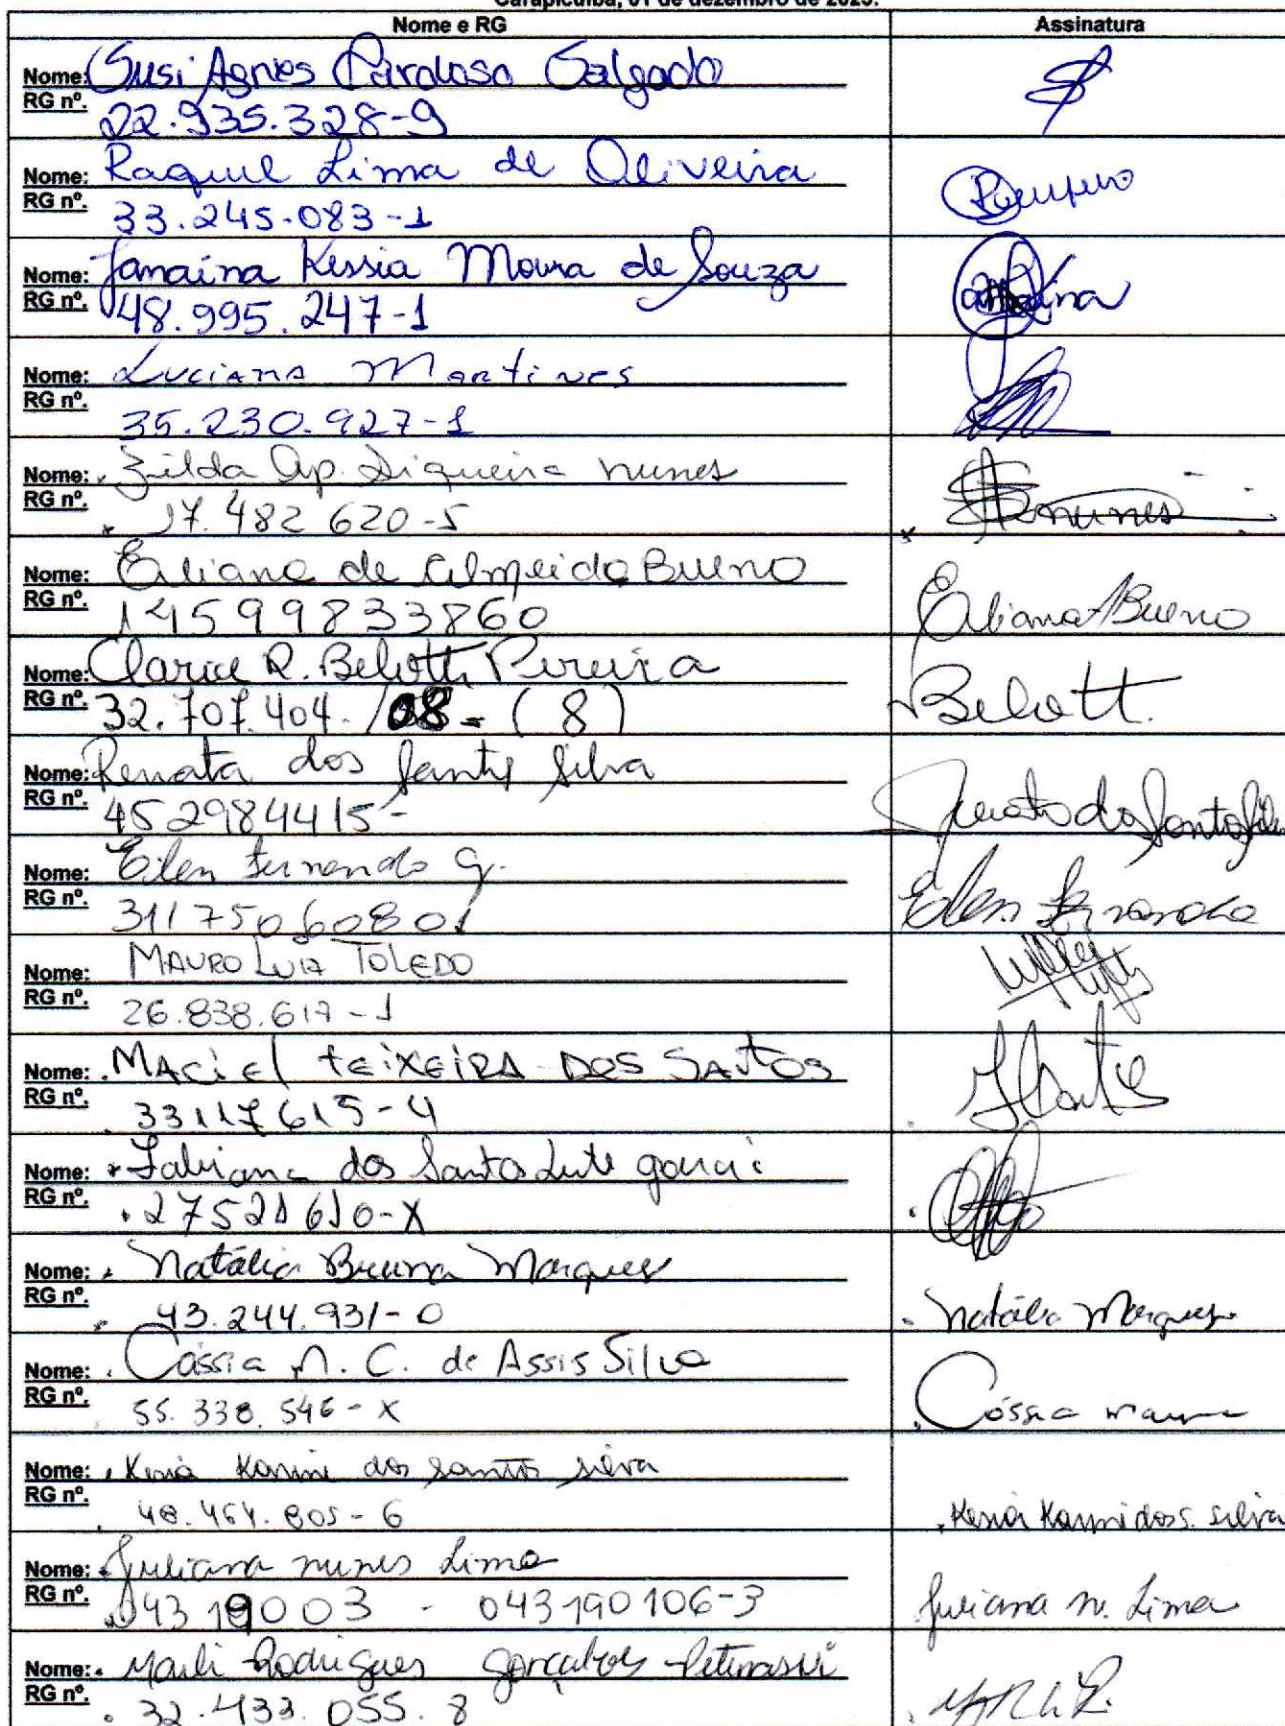 Carapicuíba, 01 de dezembro de 2023.
Nome e RG Assinatura
Nome: Susi Agnes Cardoso Salgado
RG nº. 22.935.328-9
Nome: Raquel Lima de Oliveira
RG nº. 33.245.083-1
Nome: Janaina Kessia Moura de Souza
RG nº. 48.995.247-1
Nome: Luciana Martines
RG nº. 35.230.927-1
Nome: Zilda Ap. Siqueira nunes
RG nº. 17.482 620-5
Nome: Eliane de Almeida Bueno
RG nº. 14599833860 Eliana A Bueno
Nome: Clarice R. Belotti Pereira
RG nº. 32.707.404-/08-(8) Belott.
Nome: Renata dos Santos Silva
RG nº. 452984415- Renata dos Santos Silva
Nome: Eilen Fernanda G.
RG nº. 31175060801 Eilen Fernanda
Nome: MAURO LUIZ TOLEDO
RG nº. 26.838.617-1
Nome: MACiEl tEiXEiRA DOS SANtOS
RG nº. 33117615-4
Nome: Fabiana dos Santos Leite
RG nº. 27521610-X
Nome: Natália Bruna Marques
RG nº. 43.244.931-0 Natália Marques
Nome: Cássia M. C. de Assis Silva
RG nº. 55.338.546-X Cássia
Nome: Kenia Karini dos santos silva
RG nº. 48.464.805-6 Kenia Karini dos s. silva
Nome: Juliana nunes Lima
RG nº. 04319003 - 043190106-3 Juliana n. Lima
Nome: Marli Rodrigues Gonçalves
RG nº. 32.433.055.8